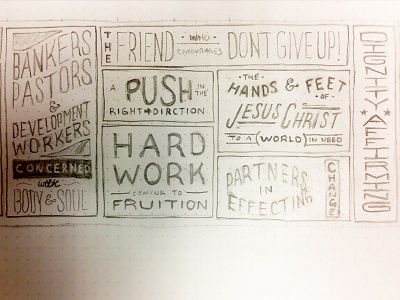 BANKERS
PASTORS
&
DEVELOPMENT
WORKERS
CONCERNED
with
BODY & SOUL
THE FRIEND WHO ENCOURAGES DON'T GIVE UP!
A PUSH IN THE
RIGHT DIRCTION
HARD
WORK
COMING TO
FRUITION
THE
HANDS & FEET
OF
JESUS CHRIST
TO A (WORLD) IN NEED
PARTNERS
IN
EFFECTING
CHANGE
DIGNITY AFFIRMING